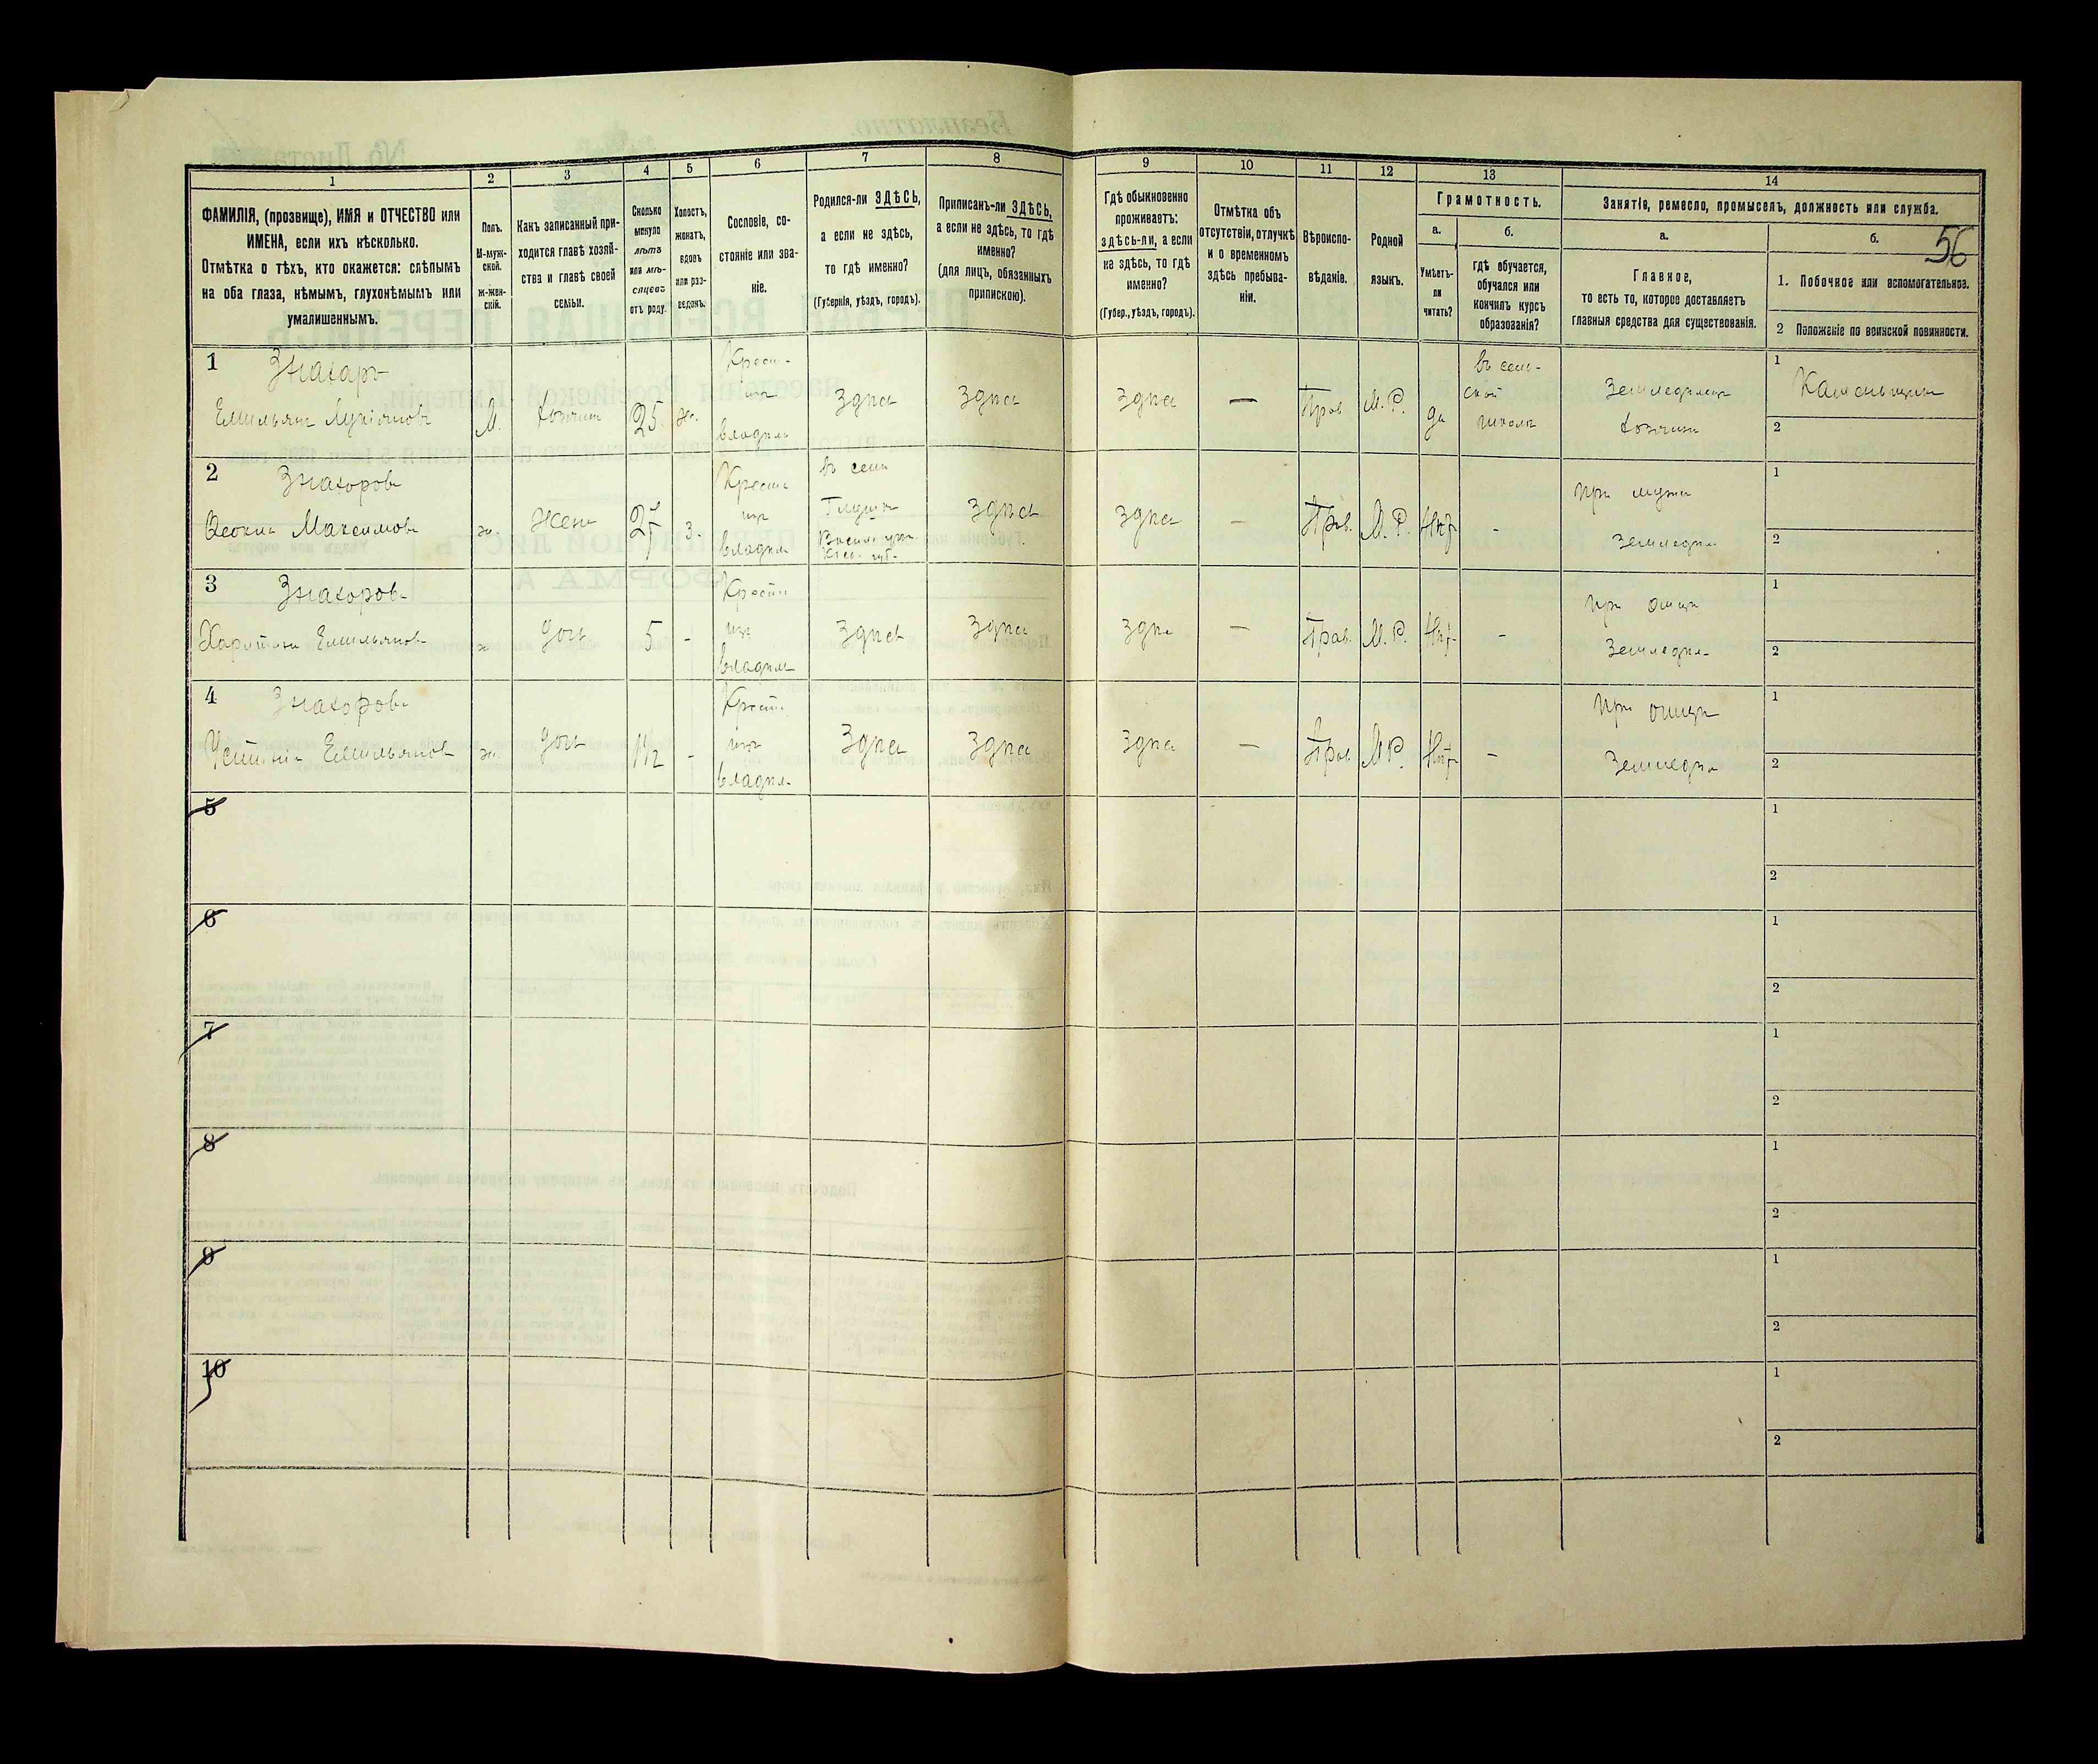 56
1
2
3
4
5
6
7
8
9
10
11
12
13
14
ФАМИЛІЯ, (прозвище), ИМЯ и ОТЧЕСТВО или
ИМЕНА, если ихъ нѣсколько.
Отмѣтка о тѣхъ, кто окажется: слѣпымъ
на оба глаза, нѣмымъ, глухонѣмымъ или
умалишеннымъ.
Полъ.
М-муж-
ской.
ж-жен-
скій.
Какъ записанный при-
ходится главѣ хозяй-
ства и главѣ своей
семьи.
Сколько
минуло
лѣтъ
или мѣ-
сяцевъ
отъ роду.
Холостъ,
женатъ,
вдовъ
или раз-
веденъ.
Сословіе, со-
стояніе или зва-
ніе.
Родился-ли ЗДѢСЬ,
а если не здѣсь,
то гдѣ именно?
(Губернія, уѣздъ, городъ).
Приписанъ-ли ЗДѢСЬ,
а если не здѣсь, то гдѣ
именно?
(для лицъ, обязанныхъ
припискою).
Гдѣ обыкновенно
проживаетъ:
здѣсь-ли, а если
не здѣсь, то гдѣ
именно?
(Губер., уѣздъ, городъ).
Отмѣтка объ
отсутствіи, отлучкѣ
и о временномъ
здѣсь пребыва-
ніи.
Вѣроиспо-
вѣданіе.
Родной
языкъ.
Грамотность.
а.
Умѣетъ-
ли
читать?
б.
гдѣ обучается,
обучался или
кончилъ курсъ
образованія?
Занятіе, ремесло, промыселъ, должность или служба.
а.
Главное,
то есть то, которое доставляетъ
главныя средства для существованія.
б.
1. Побочное или вспомогательное.
2 Положеніе по воинской повинности.
1
Знахарь
Емильянъ Лукіяновъ
М.
хозяинъ
25
ж.
Крест.
изъ
владѣл.
Здѣсь
Здѣсь
Здѣсь
—
Прав.
М. Р.
да
въ сель-
ской
школѣ
Земледѣлецъ
хозяинъ
1
Каменьщикъ
2
2
Знахорова
Максимова
ж.
Жена
з.
Крест.
изъ
владѣл.
въ селѣ
Здѣсь
Здѣсь
-
Прав.
М. Р.
Нѣт
-
При мужѣ
Земледѣл.
1
2
3
Знахорова
Емильянова
ж
дочь
5
-
Крест.
изъ
владѣл.
Здѣсь
Здѣсь
Здѣсь
—
Прав.
М. Р.
Нѣт
-
При отцѣ
Земледѣл.
1
2
4
Знахорова
Устинія Емильянова
ж.
дочь
1½
-
Крест.
изъ
владѣл.
Здѣсь
Здѣсь
Здѣсь
—
Прав.
М. Р.
Нѣт
-
При отцѣ
Земледѣл.
1
2
5
1
2
6
1
2
7
1
2
8
1
2
9
1
2
10
1
2